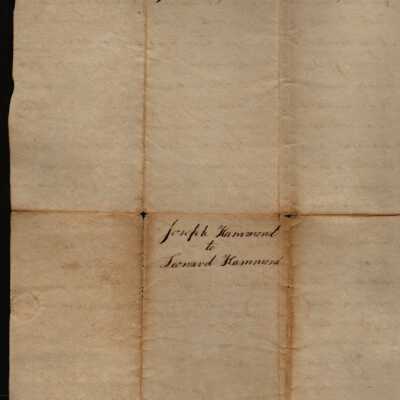 Joseph Hammond
to
Leonard Hammond